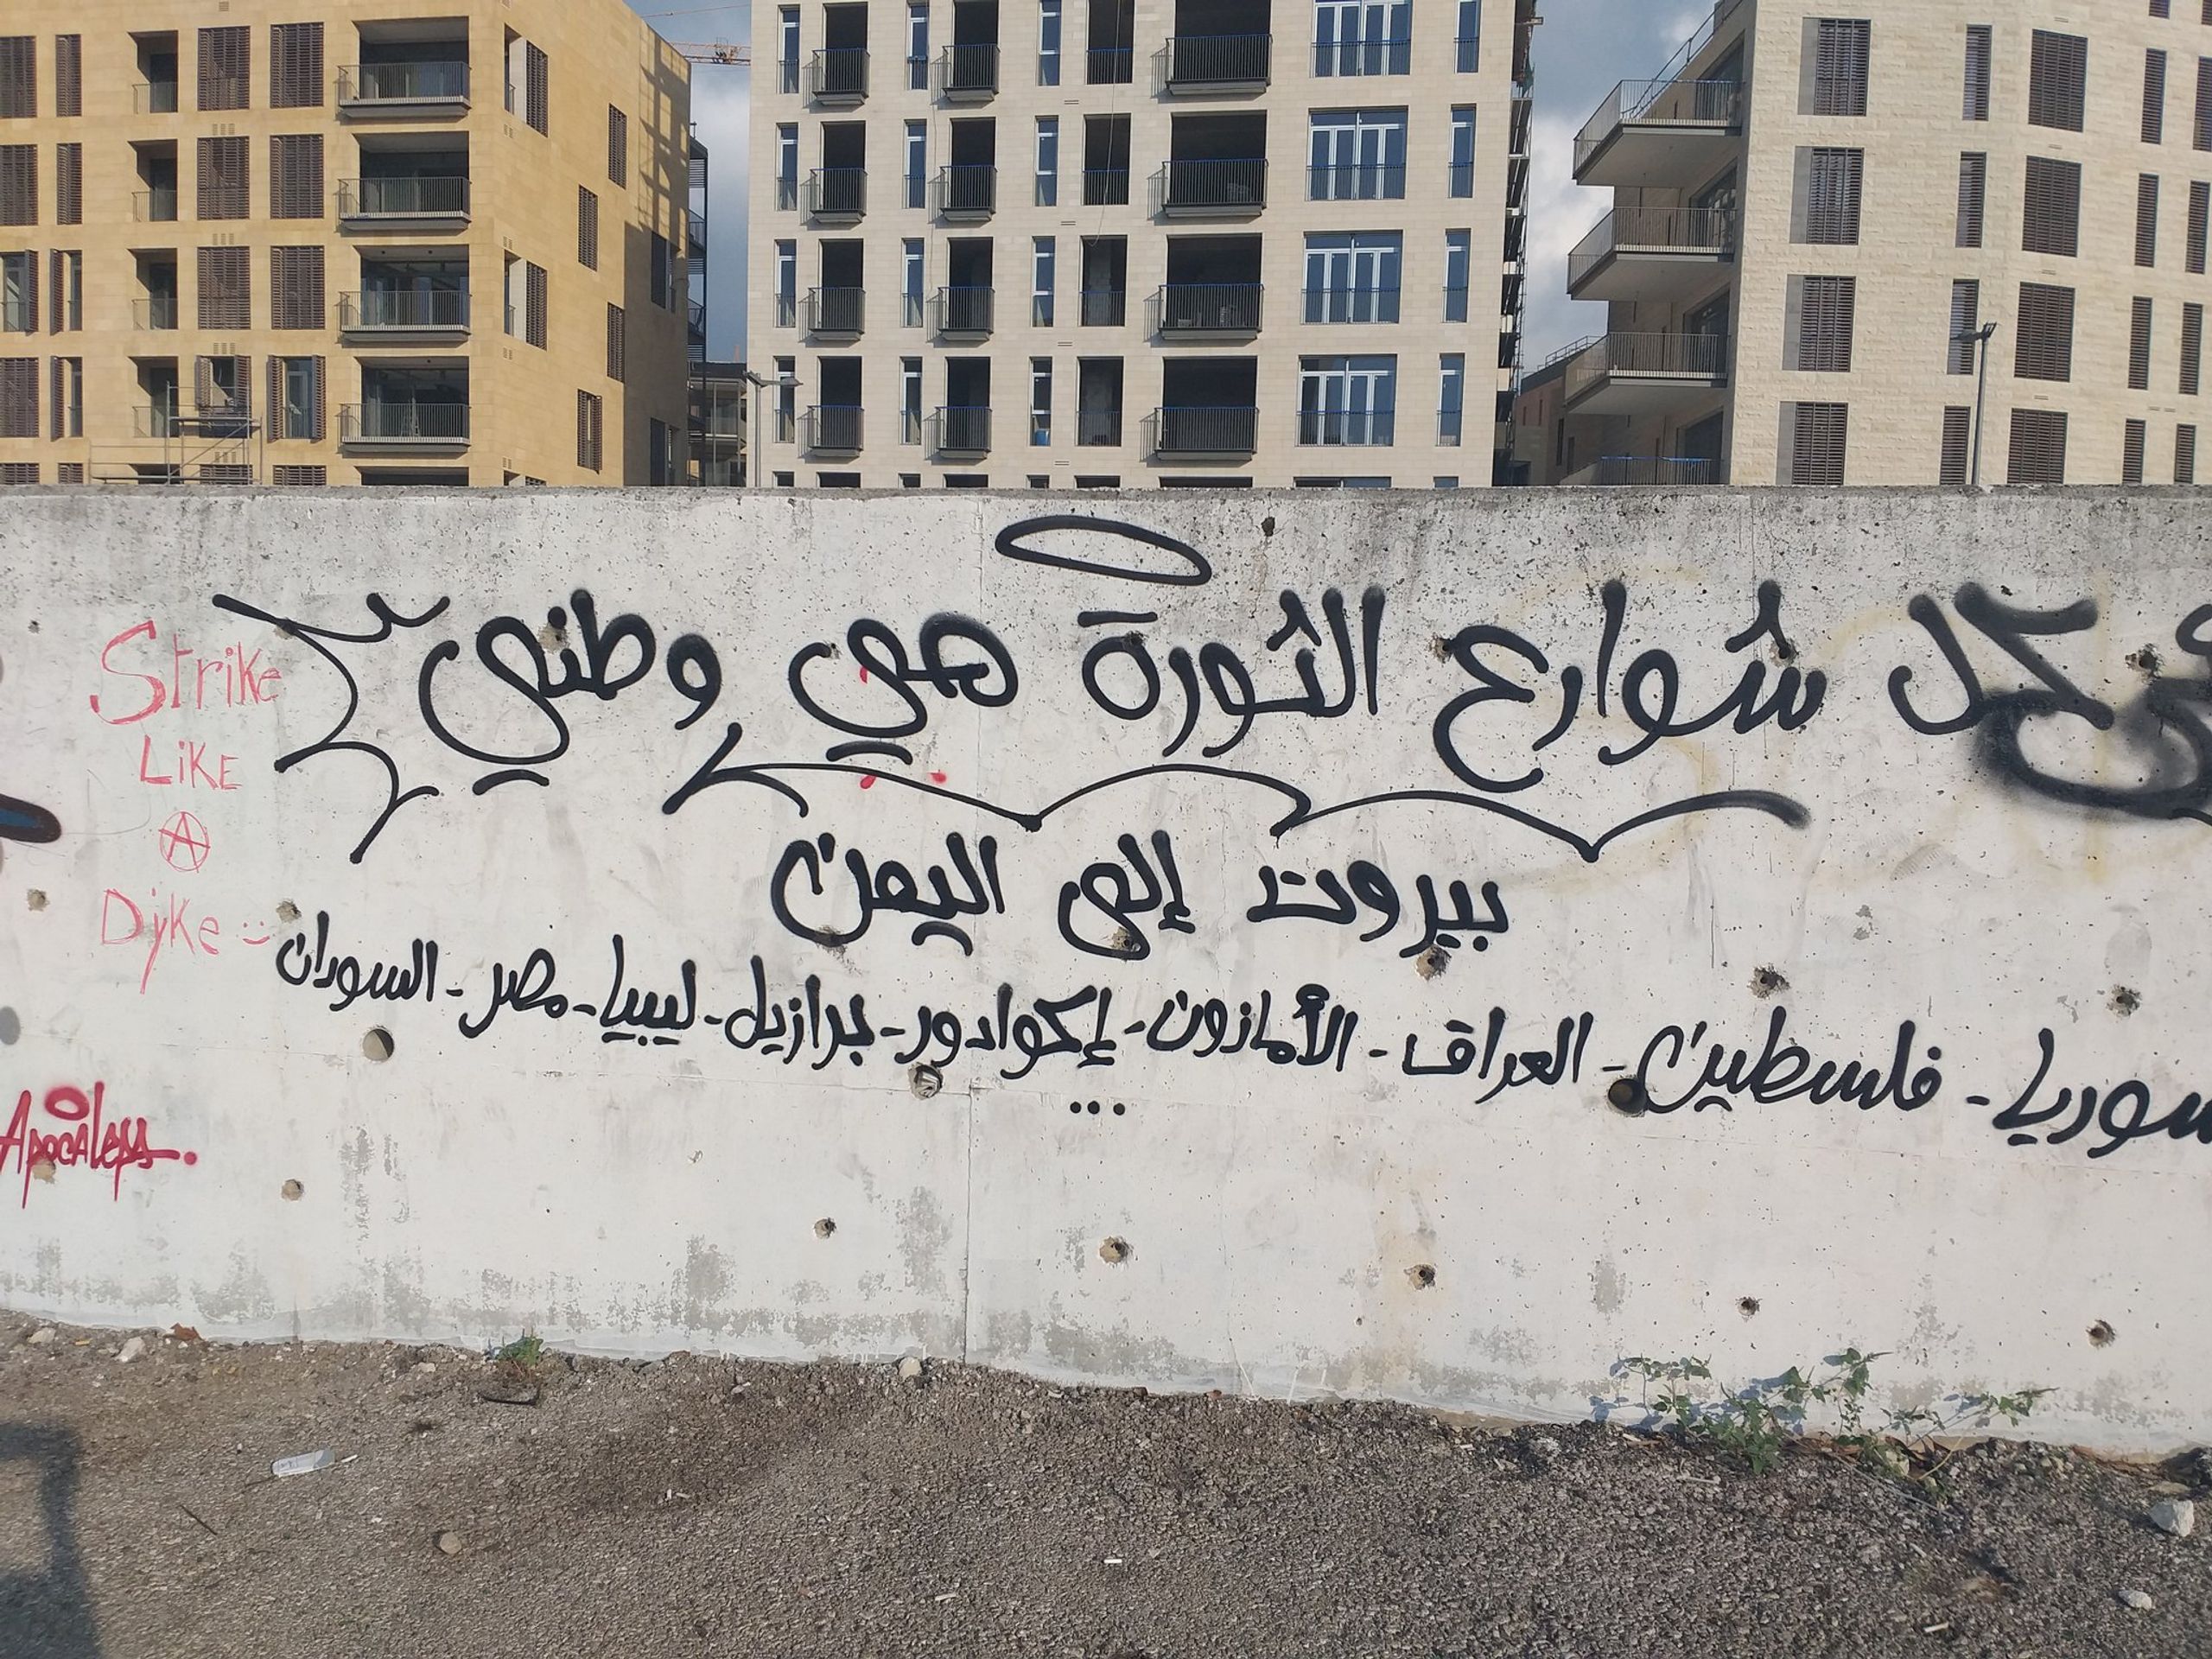 كل شوارع الثورة هي وطني
بيروت إلى اليمن
سوريا - فلسطين - العراق - الأمازون - إكوادور - برازيل - ليبيا - مصر - السودان
...
Strike
Like
A
Dyke :)